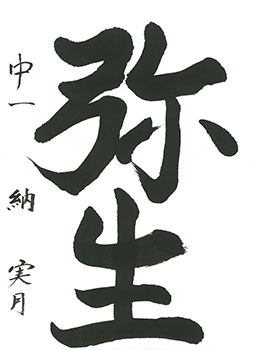 弥生
中一 納 実月